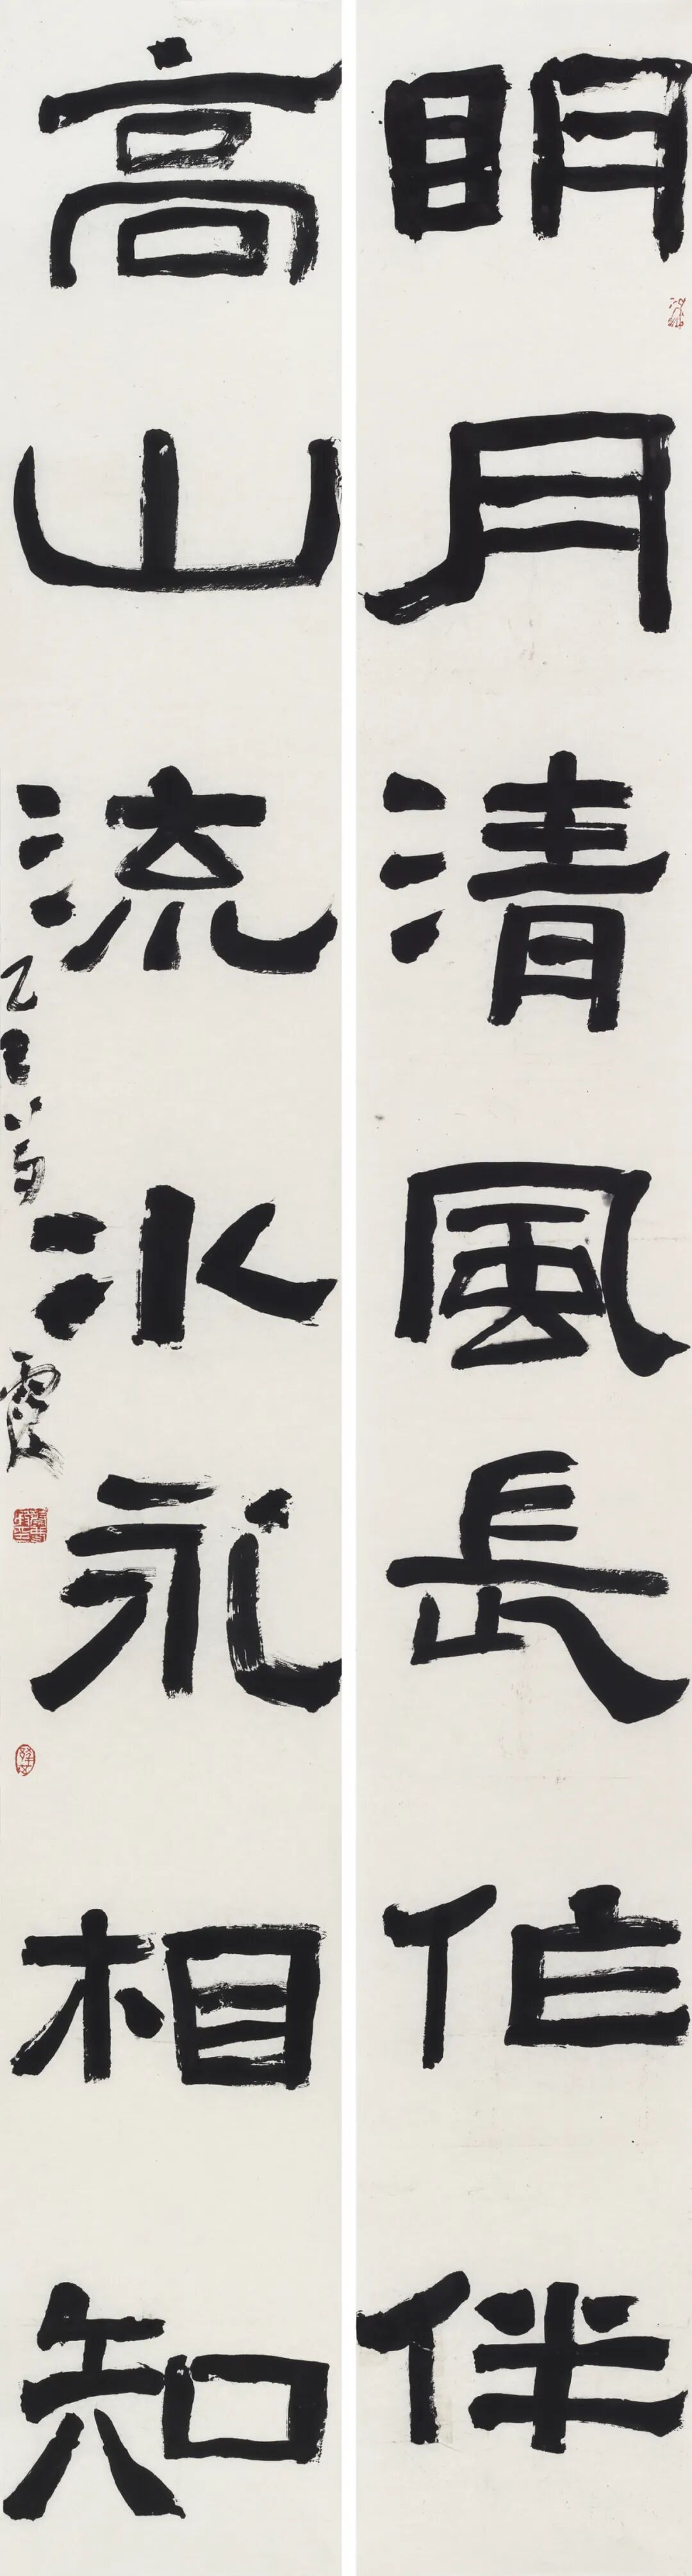 明月清風長作伴
高山流水永相知
乙巳
霞